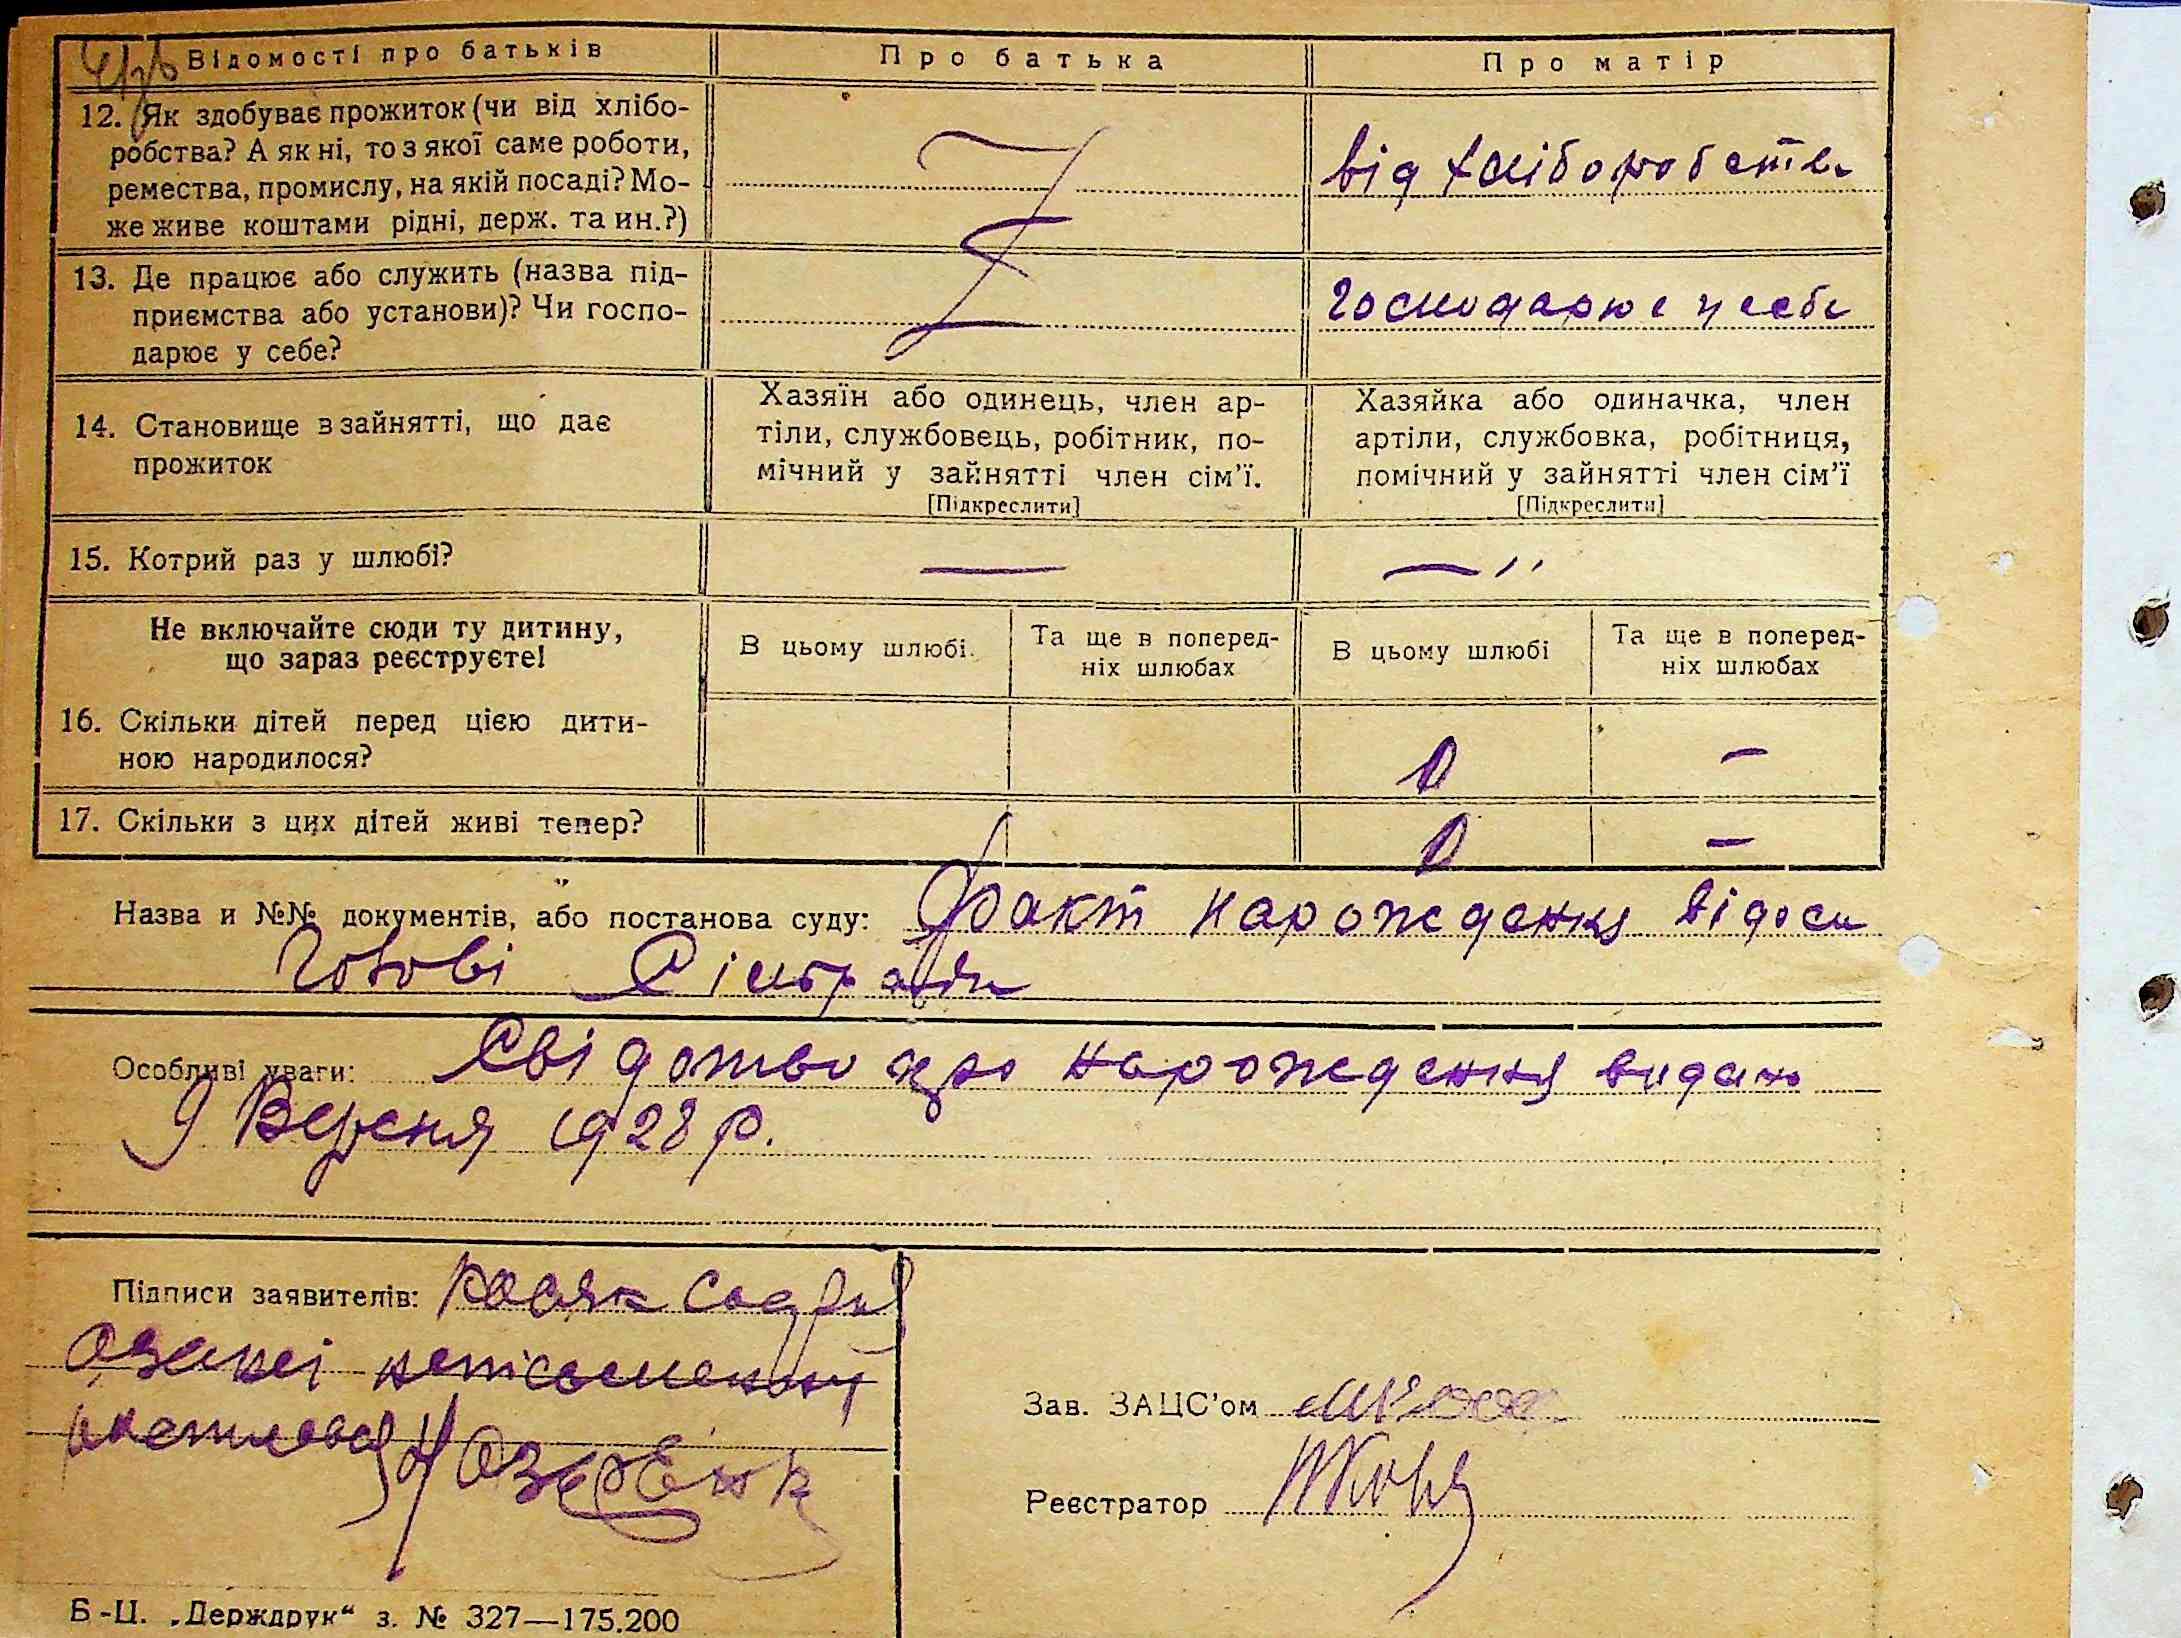 Відомості про батьків
Про батька
Про матір
12. Як здобуває прожиток (чи від хлібо-
робства? А як ні, то з якої саме роботи,
ремества, промислу, на якій посаді? Мо-
же живе коштами рідні, держ. та ин.?)
від хліборобства
13. Де працює або служить (назва під-
приємства або установи)? Чи госпо-
дарює у себе?
господарює у себе
14. Становище в зайнятті, що дає
прожиток
Хазяїн або одинець, член ар-
тіли, службовець, робітник, по-
мічний у зайнятті член сім'ї.
[Підкреслити]
Хазяйка або одиначка, член
артіли, службовка, робітниця,
помічний у зайнятті член сім'ї
[Підкреслити]
15. Котрий раз у шлюбі?
—
— ,,
Не включайте сюди ту дитину,
що зараз реєструєте!
В цьому шлюбі.
Та ще в поперед-
ніх шлюбах
В цьому шлюбі
Та ще в поперед-
ніх шлюбах
16. Скільки дітей перед цією дити-
ною народилося?
0 —
17. Скільки з цих дітей живі тепер?
0 —
Назва и №№ документів, або постанова суду: Факт нарождення відоси
Готові Сільради
Особливі уваги: Свідотво про нарождення видано
9 Вересня 1928 р.
Підписи заявителів:
неписьменому
Зав. ЗАЦС'ом
Реєстратор
Б-Ц. „Держдрук“ з. № 327—175.200